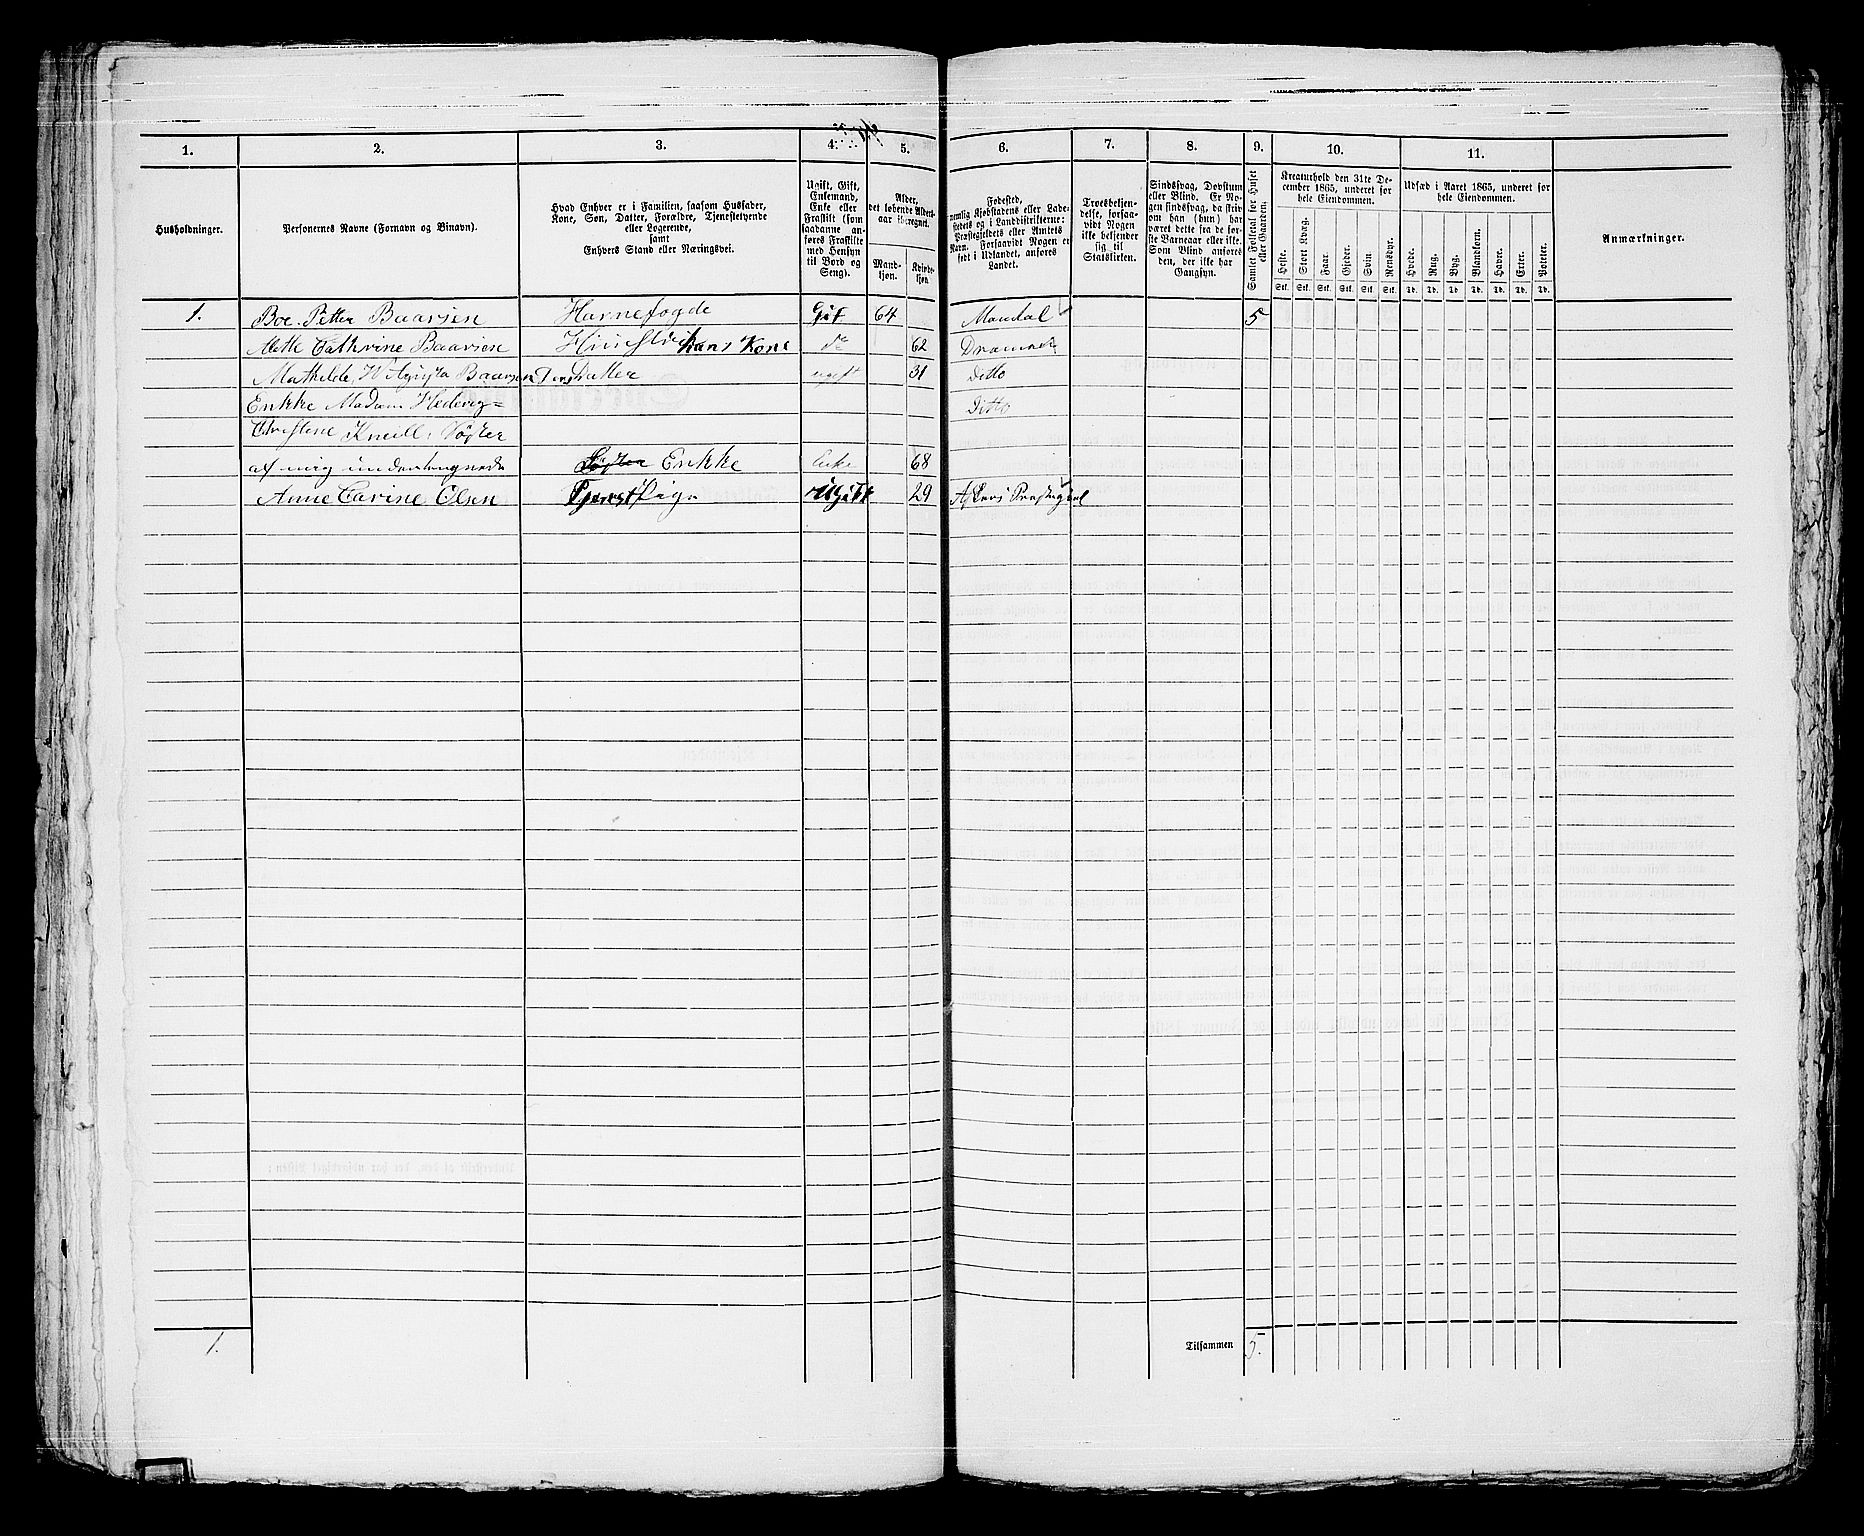 1. 2. 3. 4. 5. 6. 7. 8. 9. 10. 11.
Husholdninger.
Personernes Navne (Fornavn og Binavn).
Hvad Enhver er i Familien, saasom Husfader,
Kone, Søn, Datter, Forældre, Tjenestetyende
eller Logerende,
samt
Enhvers Stand eller Næringsvei.
Ugift, Gift,
Enkemand,
Enke eller
Fraskilt (som
saadanne an-
føres Fraskilte
med Hensyn
til Bord og
Seng).
Alder,
det løbende Alders-
aar iberegnet.
Mand-
kjøn.
Kvinde-
kjøn.
Fødested,
nemlig Kjøbstadens eller Lade-
stedets og i Landdistrikterne:
Præstegjeldets eller Amtets
Navn. Forsaavidt Nogen er
født i Udlandet, anføres
Landet.
Troesbekjen-
delse, forsaa-
vidt Nogen
ikke bekjender
sig til
Statskirken.
Sindssvag, Døvstum
eller Blind. Er No-
gen sindssvag, da skriv
om han (hun) har
været dette fra de før-
ste Barneaar eller ikke.
Som Blind anføres
den, der ikke har
Gangsyn.
Samlet Folketal for Huset
eller Gaarden.
Kreaturhold den 31te De-
cember 1865, underet for
hele Eiendommen.
Heste. Stort Kvæg. Faar. Gjeder. Svin. Rensdyr.
Stk. Stk. Stk. Stk. Stk. Stk.
Udsæd i Aaret 1865, underet for
hele Eiendommen.
Hvede. Rug. Byg. Blandkorn. Havre. Erter. Poteter.
Td. Td. Td. Td. Td. Td. Td.
Anmærkninger.
1. Boe Petter Baarsen Havnefogde Gift 64 Mandal 5
Mette Cathrine Baarsen hans Kone do 62 Drammen
Mathilde Baarsen Datter ugift 31 Ditto
Enkke Madam Hedevig= Ditto
Christene Kneill, Søster
af mig undertegnede Søster Enkke Enke 68
Anne Carine Olsen Tjenst Pige Ugift 29 Askers Prestegjeld
1. Tilsammen 5.